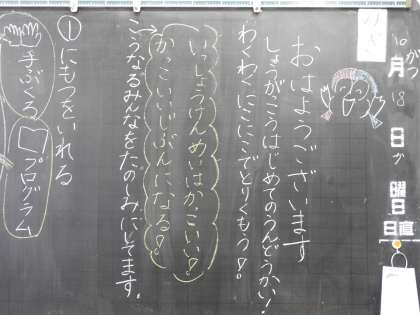 10月18日か曜日
日直
おはようございます
しょうがっこうはじめてのうんどうかい!
わくわくにこにこでとりくもう!
いっしょうけんめいはかっこいい!
かっこいいじぶんになる!
こうなるみんなをたのしみにしてます。
①にもつをいれる
手ぶくろ
プログラム